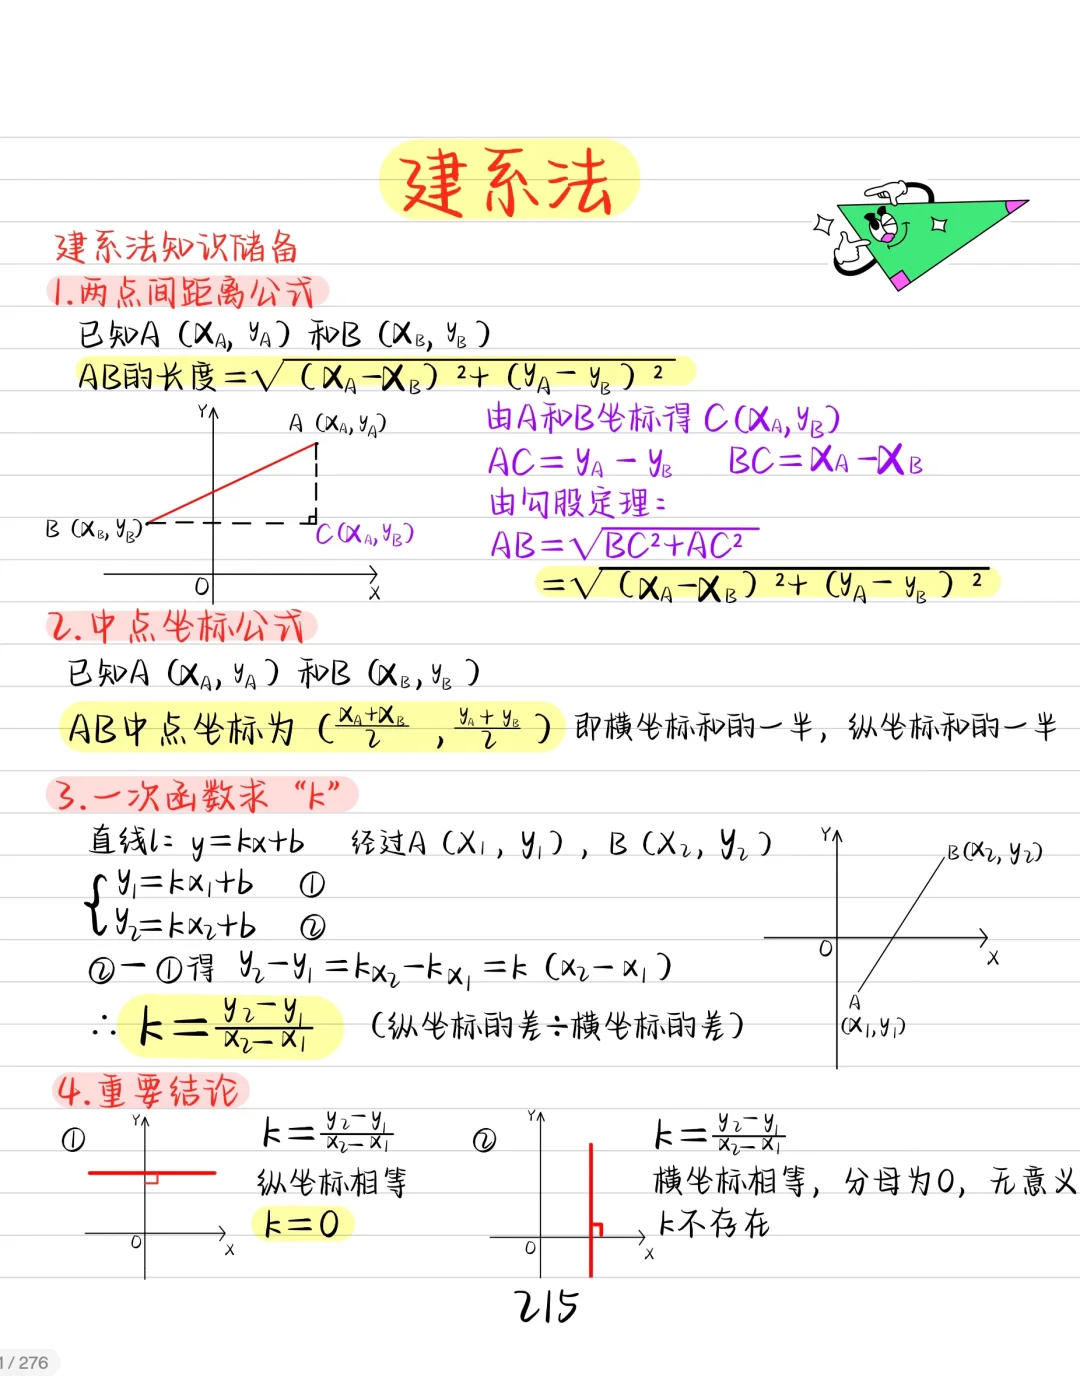 建系法
建系法知识储备
1.两点间距离公式
已知A（x_A, y_A）和B（x_B, y_B）
AB的长度=√（x_A-x_B）²+（y_A-y_B）²
Y
A（x_A, y_A）
B（x_B, y_B）
C(x_A, y_B)
O
X
由A和B坐标得 C(x_A, y_B)
AC=y_A-y_B BC=x_A-x_B
由勾股定理:
AB=√BC²+AC²
=√（x_A-x_B）²+（y_A-y_B）²
2.中点坐标公式
已知A（x_A, y_A）和B（x_B, y_B）
AB中点坐标为（(x_A+x_B)/2 , (y_A+y_B)/2）即横坐标和的一半，纵坐标和的一半
3.一次函数求“k”
直线l: y=kx+b 经过A（x₁, y₁）, B（x₂, y₂）
{y₁=kx₁+b ①
y₂=kx₂+b ②
②-①得 y₂-y₁=kx₂-kx₁=k（x₂-x₁）
∴ k=(y₂-y₁)/(x₂-x₁) （纵坐标的差÷横坐标的差）
Y
B(x₂, y₂)
O
X
A
(x₁, y₁)
4.重要结论
①
Y
O
X
k=(y₂-y₁)/(x₂-x₁)
纵坐标相等
k=0
②
Y
O
X
k=(y₂-y₁)/(x₂-x₁)
横坐标相等，分母为0，无意义
k不存在
215
1/276